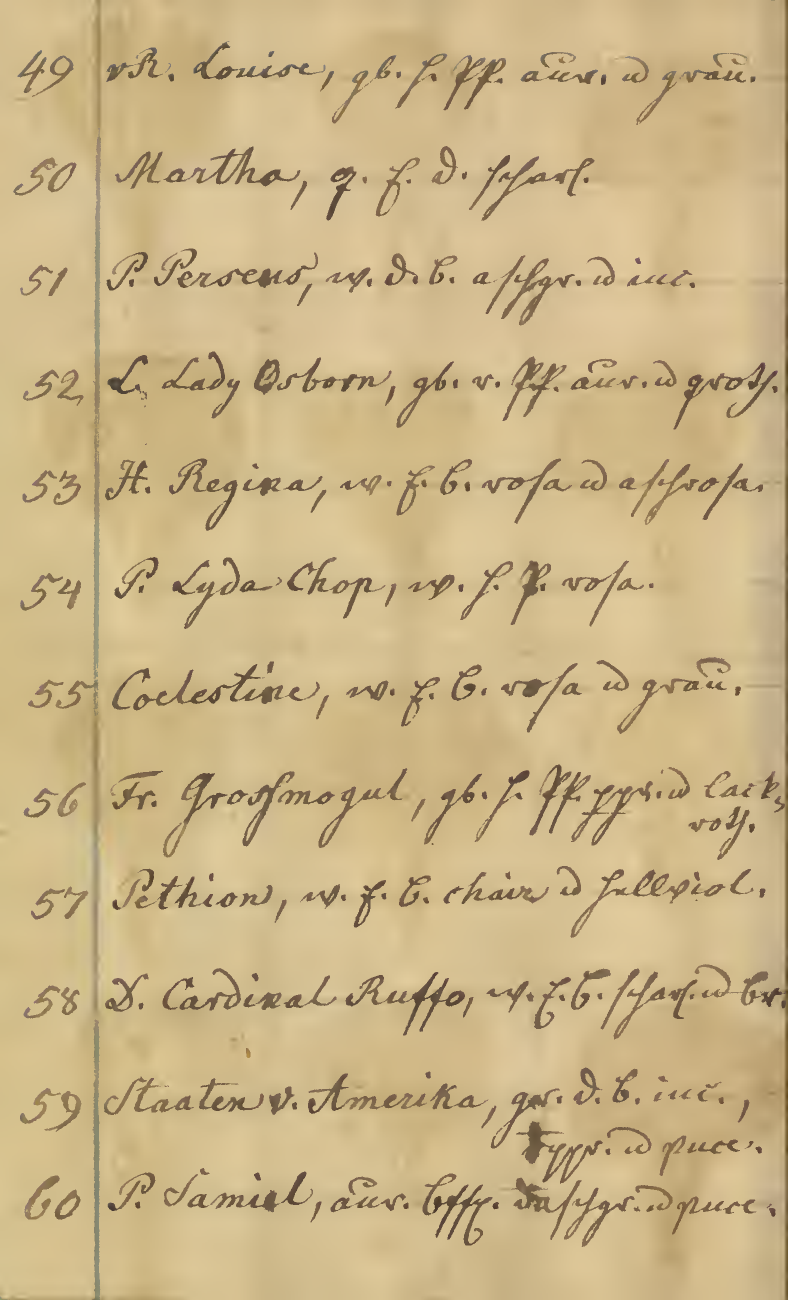 49 vR. Louise, gb. h. Pp. aur. u grau.
50 Martha, g. f. d. scharl.
51 P. Perseus, w. d. b. aschgr. u inc.
52 L. Lady Osborn, gb. r. Pp. aur. u groth.
53 H. Regina, w. f. b. rosa u aschrosa.
54 P. Lyda Chop, w. h. P. rosa.
55 Coelestine, w. f. b. rosa u grau.
56 Fr. Grossmogul, gb. h. Pp. ppr. u lack-
roth.
57 Pethion, w. f. b. chair u hellviol.
58 D. Cardinal Ruffo, w. f. b. scharl. u br.
59 Staaten v. Amerika, gr. d. b. inc.,
ppr. u puce.
60 P. Samiel, aur. aschgr. u puce.